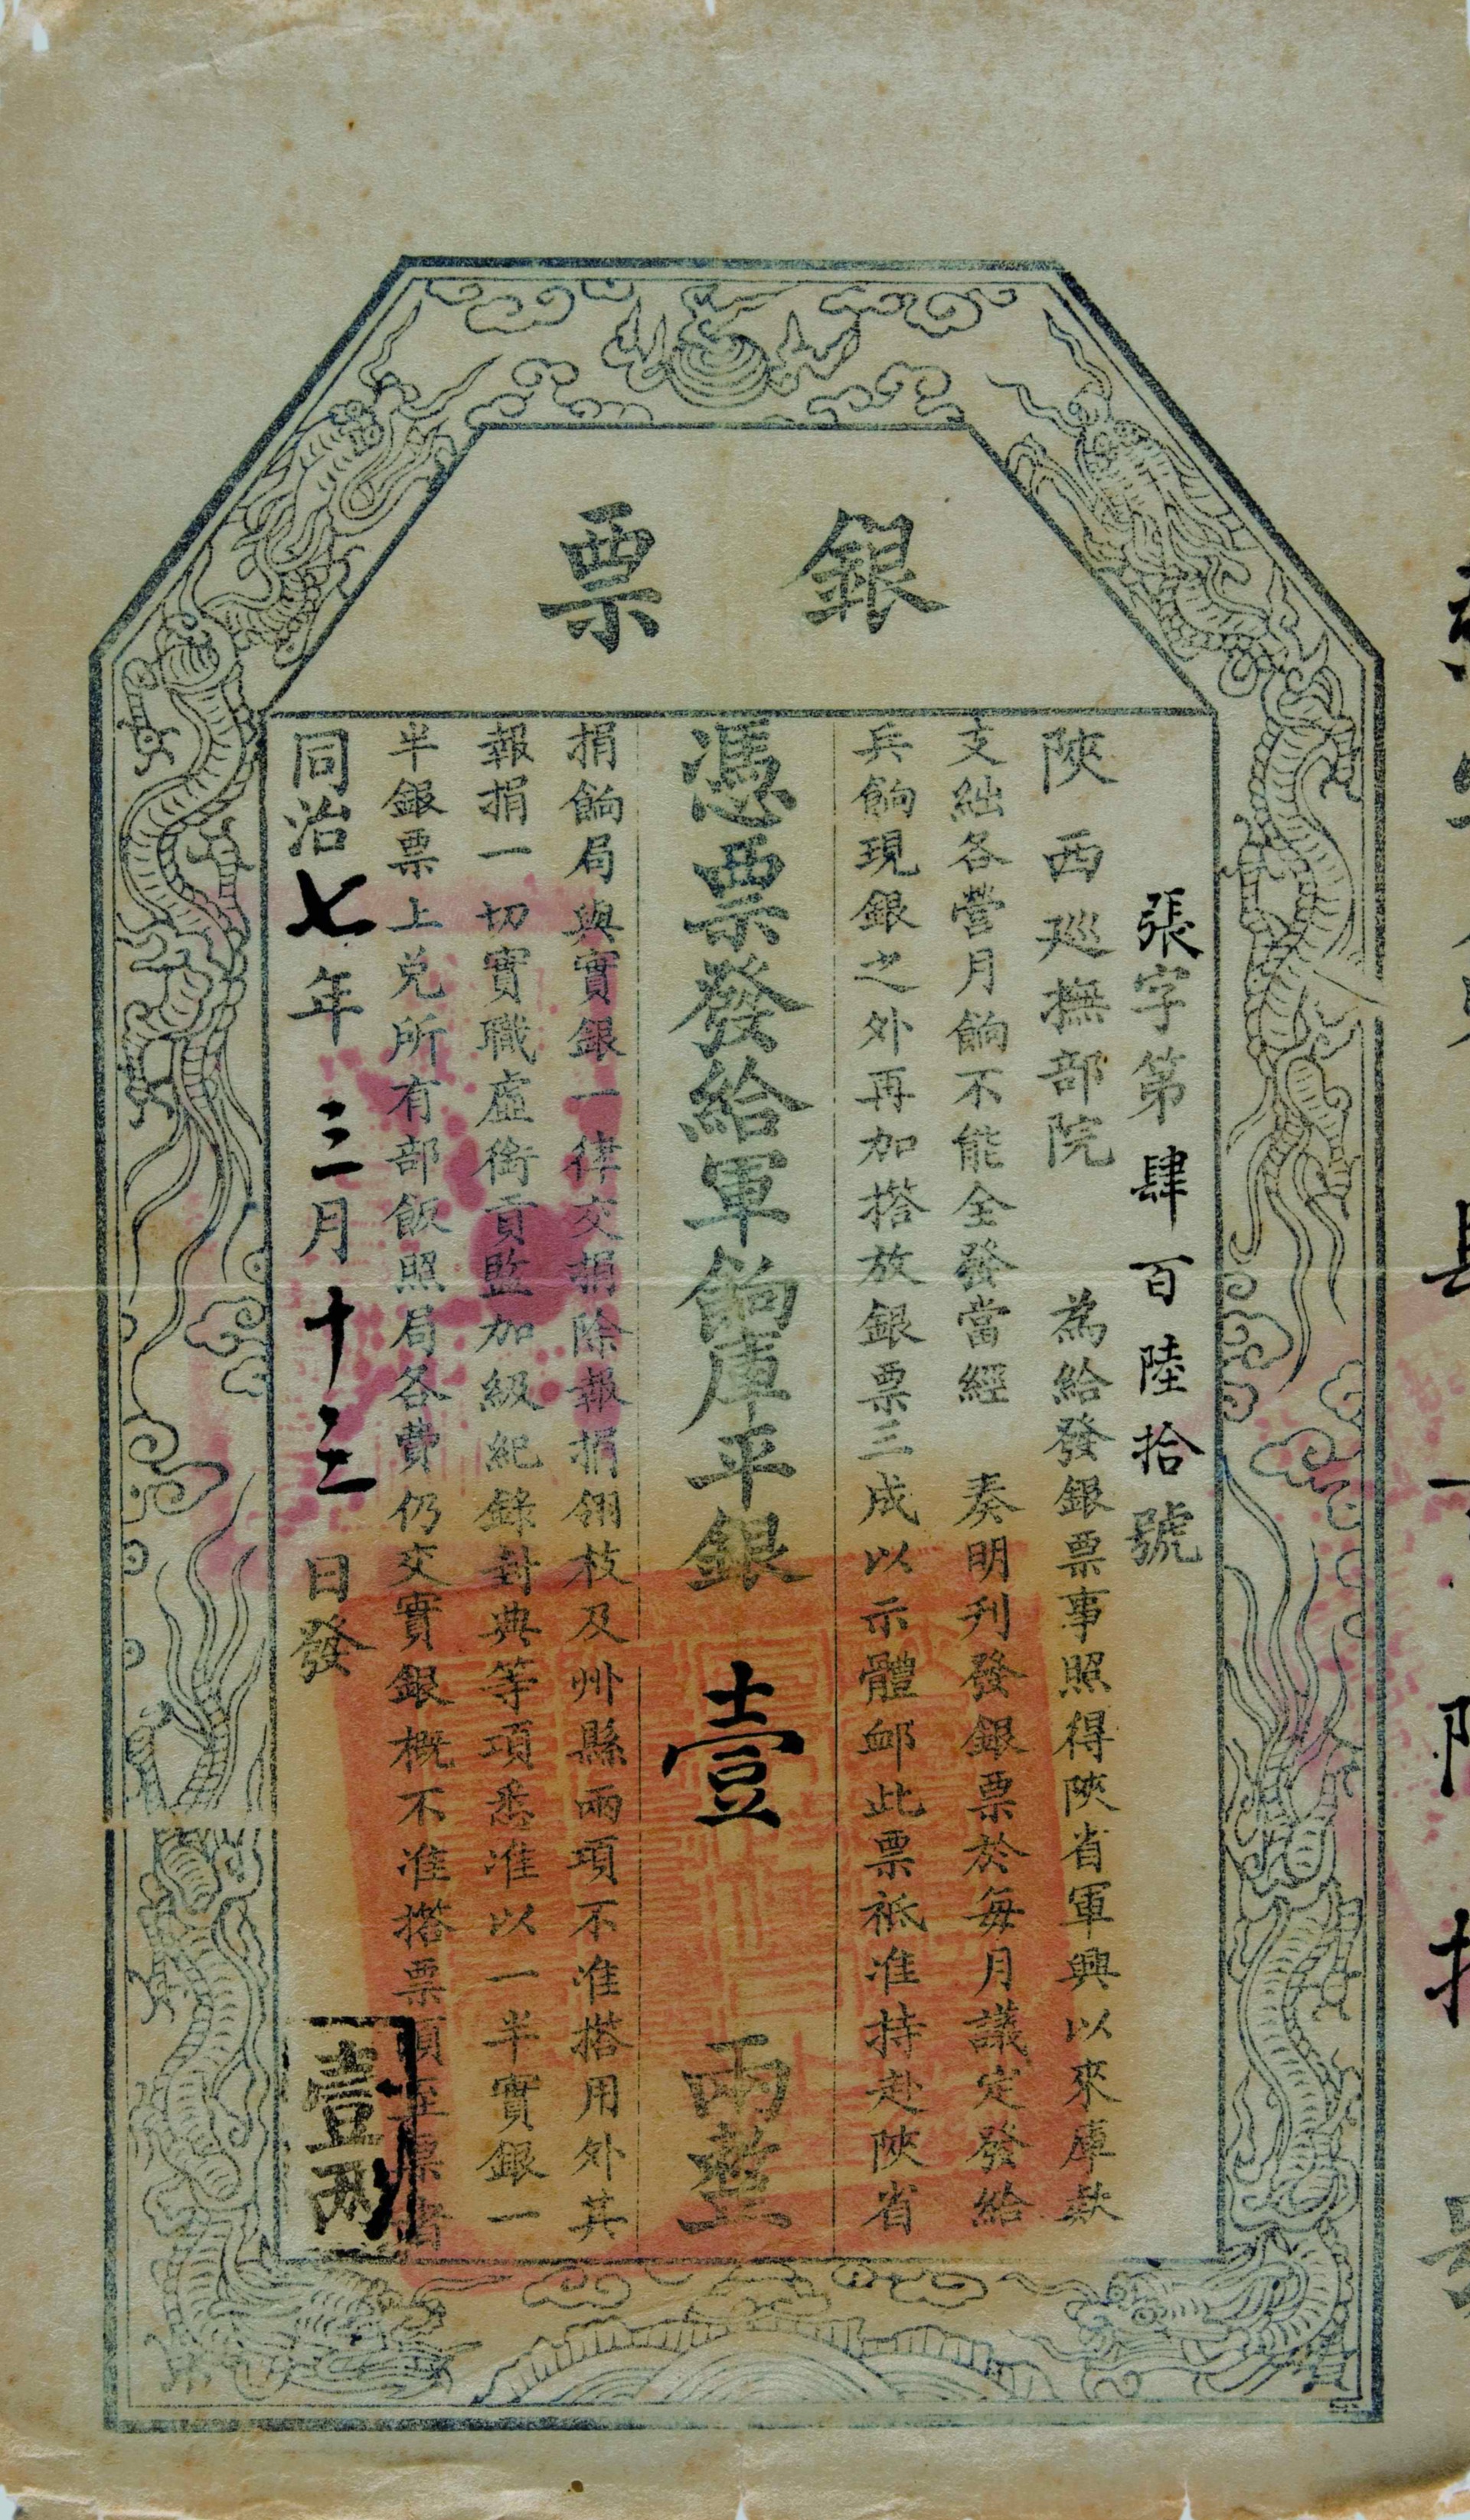 銀票
張字第肆百陸拾號
陝西巡撫部院 為給發銀票事照得陝省軍興以來庫款
支絀各營月餉不能全發當經 奏明刋發銀票於每月議定發給
兵餉現銀之外再加搭放銀票三成以示體卹此票祗准持赴陝省
憑票發給軍餉庫平銀壹兩整
捐餉局與實銀一律交捐除報捐翎枝及州縣兩項不准搭用外其
報捐一切實職虛銜貢監加級紀錄封典等項悉准以一半實銀一
半銀票上兌所有部飯照局各費仍交實銀概不准搭票須至票者
同治七年三月十三日發
壹兩